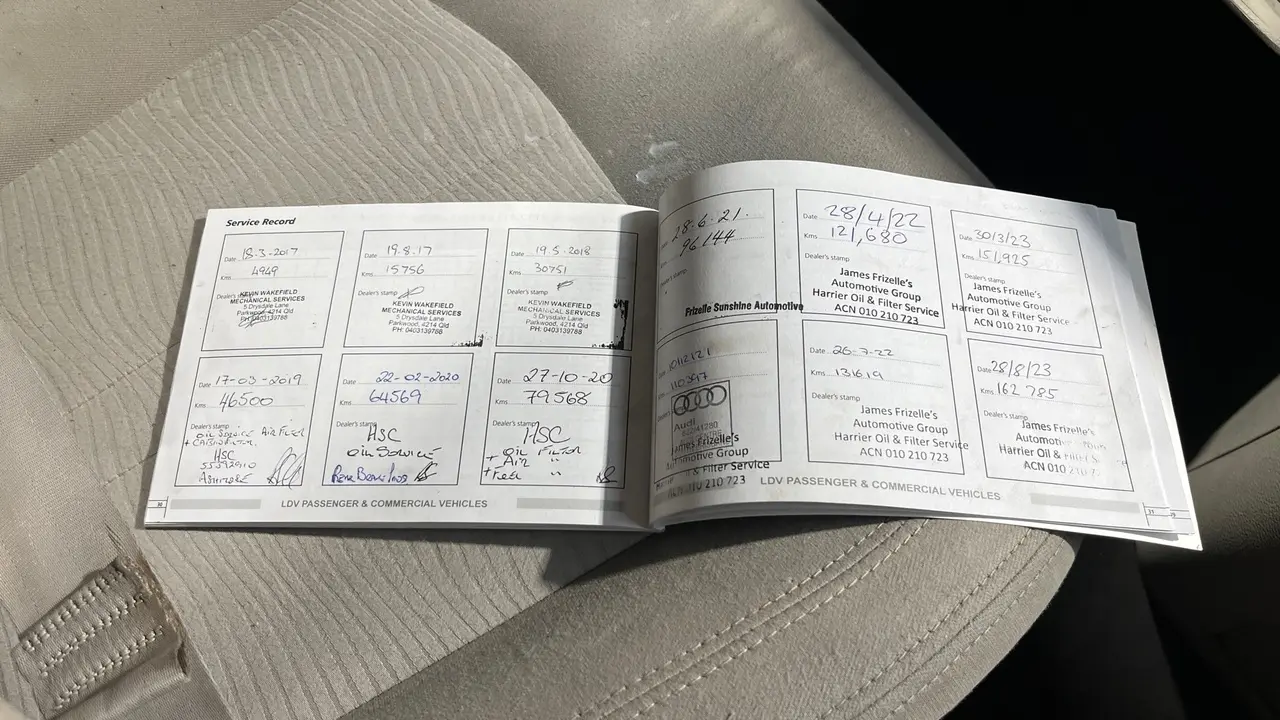 Service Record
Date 18-3-2017
Kms 4949
Dealer's stamp
KEVIN WAKEFIELD
MECHANICAL SERVICES
5 Drysdale Lane
Parkwood, 4214 Qld
PH: 0403139788
19.8.17
Kms 15756
Dealer's stamp
KEVIN WAKEFIELD
MECHANICAL SERVICES
5 Drysdale Lane
Parkwood, 4214 Qld
PH: 0403139788
Date 19.5.2018
Kms 30751
Dealer's stamp
KEVIN WAKEFIELD
MECHANICAL SERVICES
5 Drysdale Lane
Parkwood, 4214 Qld
PH: 0403139788
Date 17-03-2019
Kms 46500
Dealer's stamp
Oil Service Air Fuel
HSC
Ashmore
Date 22-02-2020
Kms 64569
Dealer's stamp
HSC
Oil Service
Date 27-10-20
Kms 79568
Dealer's stamp
HSC
+ Oil Filter
+ Air "
+ Fuel "
LDV PASSENGER & COMMERCIAL VEHICLES
28-6-21.
96144
Dealer's stamp
Frizelle Sunshine Automotive
Date 28/4/22
Kms 121,680
Dealer's stamp
James Frizelle's
Automotive Group
Harrier Oil & Filter Service
ACN 010 210 723
Date 30/3/23
Kms 151,925
Dealer's stamp
James Frizelle's
Automotive Group
Harrier Oil & Filter Service
ACN 010 210 723
10/12/21
110397
Dealer's stamp
Audi
James Frizelle's
Automotive Group
& Filter Service
ACN 010 210 723
Date 26-7-22
Kms 131619
Dealer's stamp
James Frizelle's
Automotive Group
Harrier Oil & Filter Service
ACN 010 210 723
Date 28/8/23
Kms 162 785
Dealer's stamp
James Frizelle's
Automotive
Harrier Oil &
ACN 010 210 723
LDV PASSENGER & COMMERCIAL VEHICLES
31